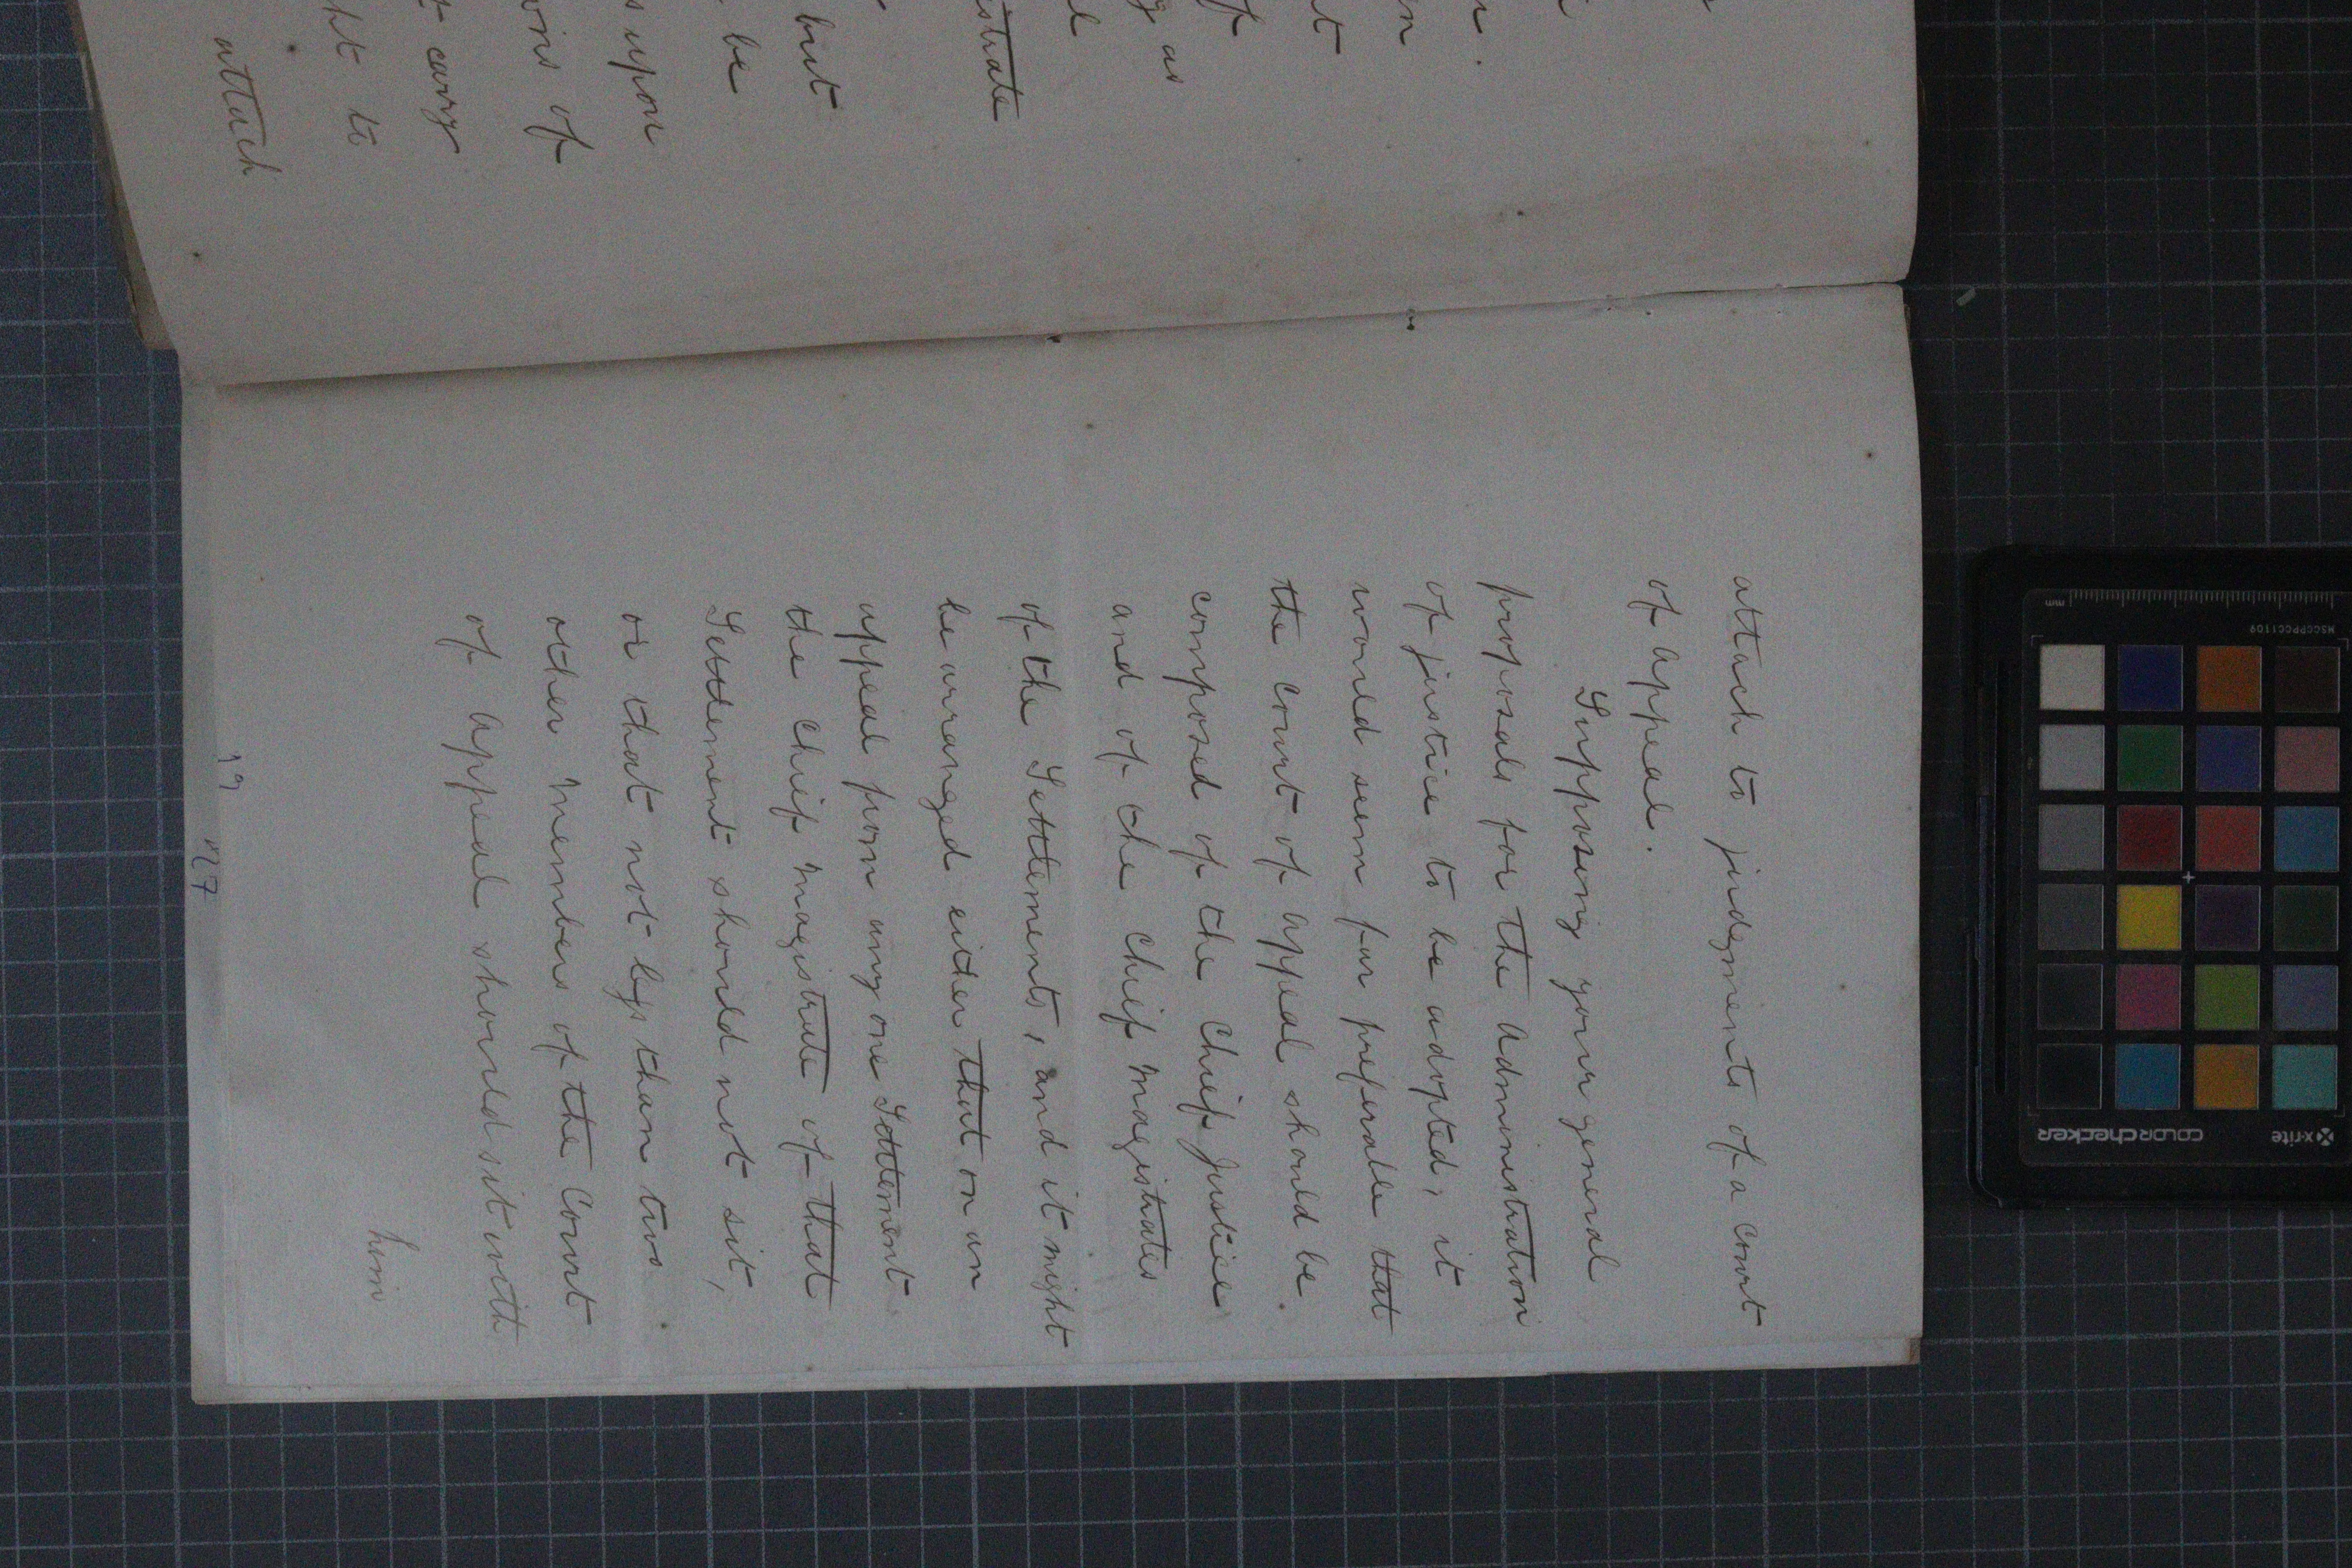 strate
but
be
s upon
ons of
t carry
ht to
attach
attach to judgments of a Court
of Appeal.
Supposing your general
proposals for the Administration
of justice to be adopted, it
would seem far preferable that
the Court of Appeal should be
composed of the Chief Justice
and of the Chief Magistrates
of the Settlements, and it might
be arranged either that on an
appeal from any one Settlement
the Chief Magistrate of that
Settlement should not sit,
or that not less than two
other Members of the Court
of Appeal should sit with
him
19
N7
x-rite
COLORchecker
MSCCPPCC1109
mm